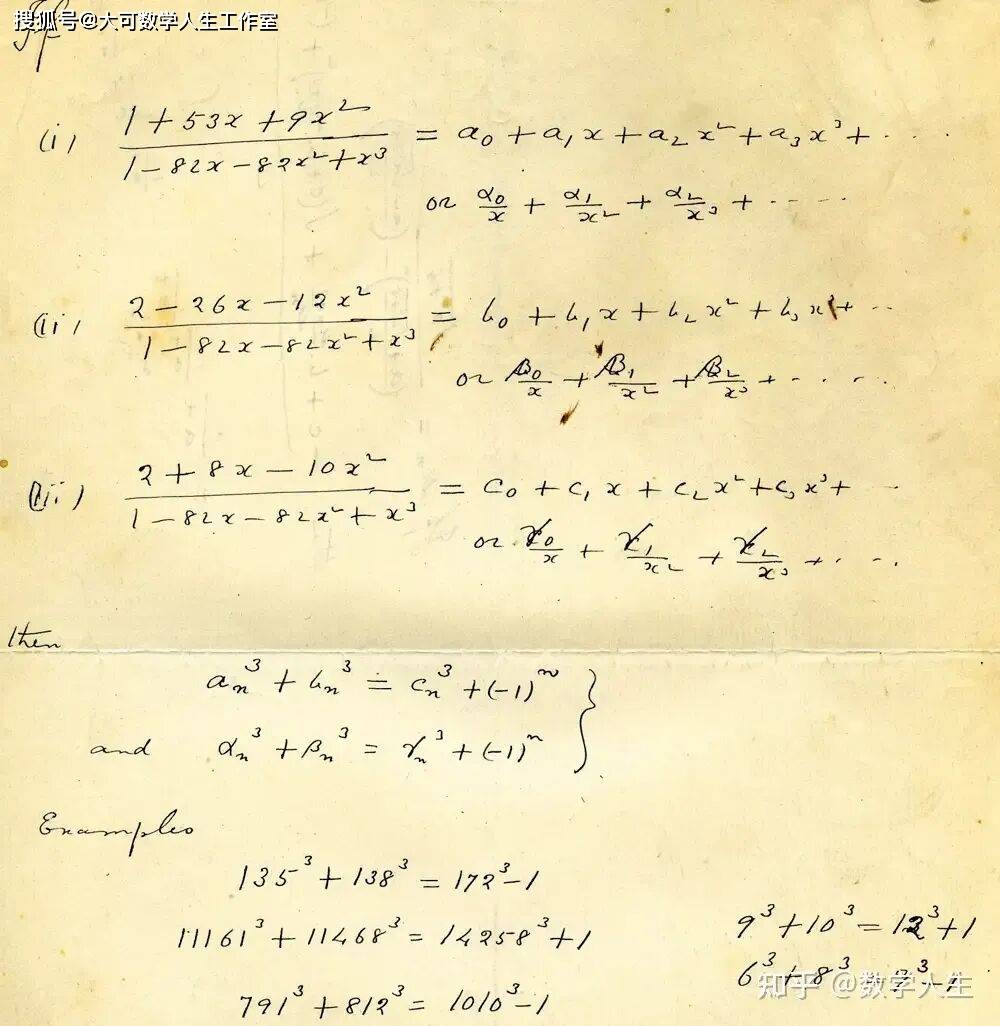 搜狐号@大可数学人生工作室
If
(i) (1 + 53x + 9x²)/(1 - 82x - 82x² + x³) = a₀ + a₁x + a₂x² + a₃x³ + ....
or α₀/x + α₁/x² + α₂/x³ + .....
(ii) (2 - 26x - 12x²)/(1 - 82x - 82x² + x³) = b₀ + b₁x + b₂x² + b₃x³ + ...
or β₀/x + β₁/x² + β₂/x³ + .....
(iii) (2 + 8x - 10x²)/(1 - 82x - 82x² + x³) = c₀ + c₁x + c₂x² + c₃x³ + ...
or γ₀/x + γ₁/x² + γ₂/x³ + ....
then
aₙ³ + bₙ³ = cₙ³ + (-1)ⁿ }
and αₙ³ + βₙ³ = γₙ³ + (-1)ⁿ
Examples
135³ + 138³ = 172³ - 1
11161³ + 11468³ = 14258³ + 1
791³ + 812³ = 1010³ - 1
9³ + 10³ = 12³ + 1
6³ + 8³ = 9³ - 1
知乎 @数学人生